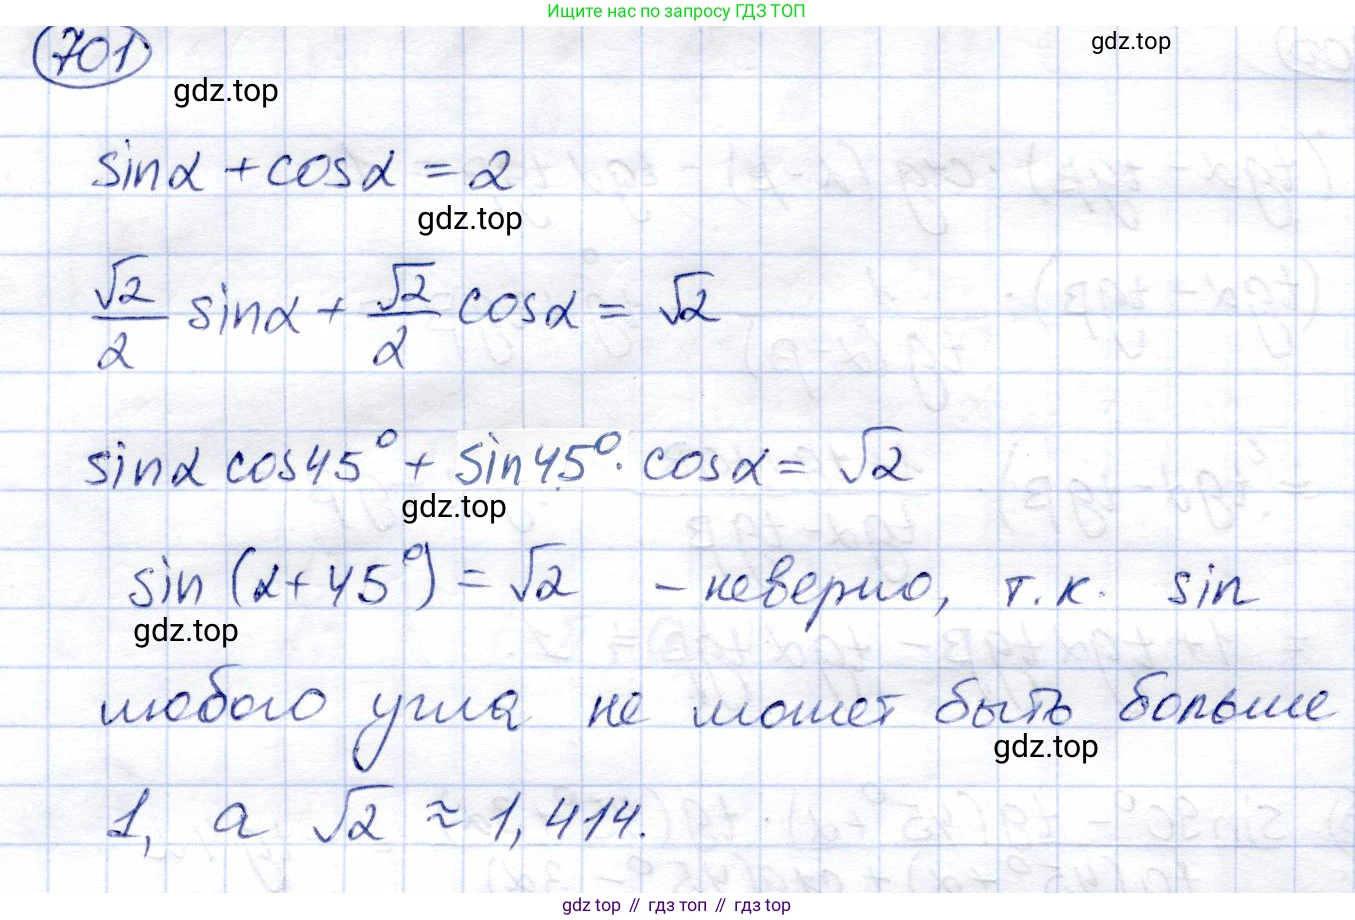 Ищите нас по запросу ГДЗ ТОП
701
gdz.top
gdz.top
sinα + cosα = 2
gdz.top
√2/2 sinα + √2/2 cosα = √2
sinα cos45° + sin45° · cosα = √2
gdz.top
sin (α + 45°) = √2 – неверно, т.к. sin
gdz.top
любого угла не может быть больше
gdz.top
1, а √2 ≈ 1,414.
gdz top // гдз топ // gdz top